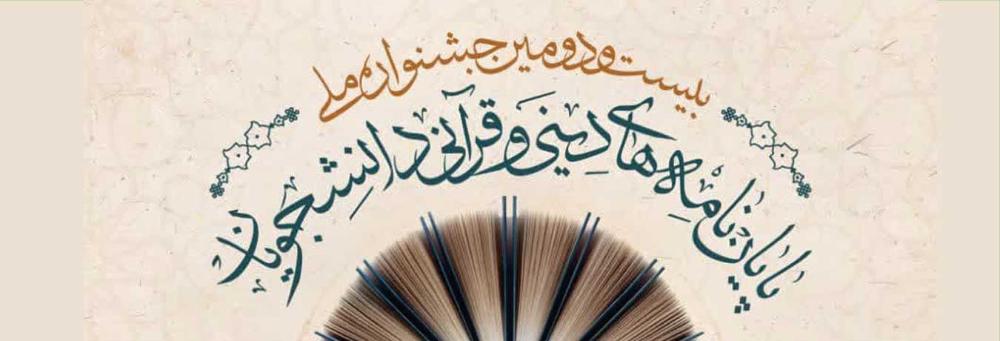 بیست و دومین جشنواره ملی
پایان نامه های دینی و قرآنی دانشجویان